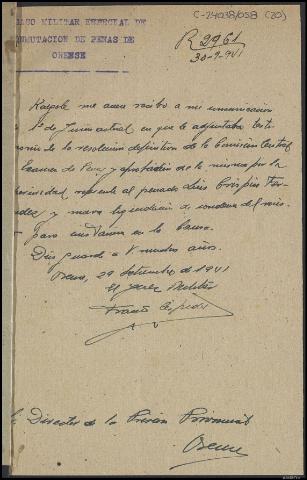 C-24038/058 (20)
MILITAR ESPECIAL DE
CONMUTACION DE PENAS DE
ORENSE
R 2961
30-9-941
Ruégole me acuse recibo a mi comunicación
1º de Junio actual en que le adjuntaba testi-
monio de la resolución definitiva de la Comisión Central
Examen de Penas y aprobación de la misma por la
Superioridad referente al penado Luis Crespios Fer-
nandez y nueva liquidación de condena del mis-
para constancia en la Causa.
Dios guarde a V muchos años.
Orense, 29 Setiembre de 1941
El Juez Militar
Director de la Prisión Provincial
Orense